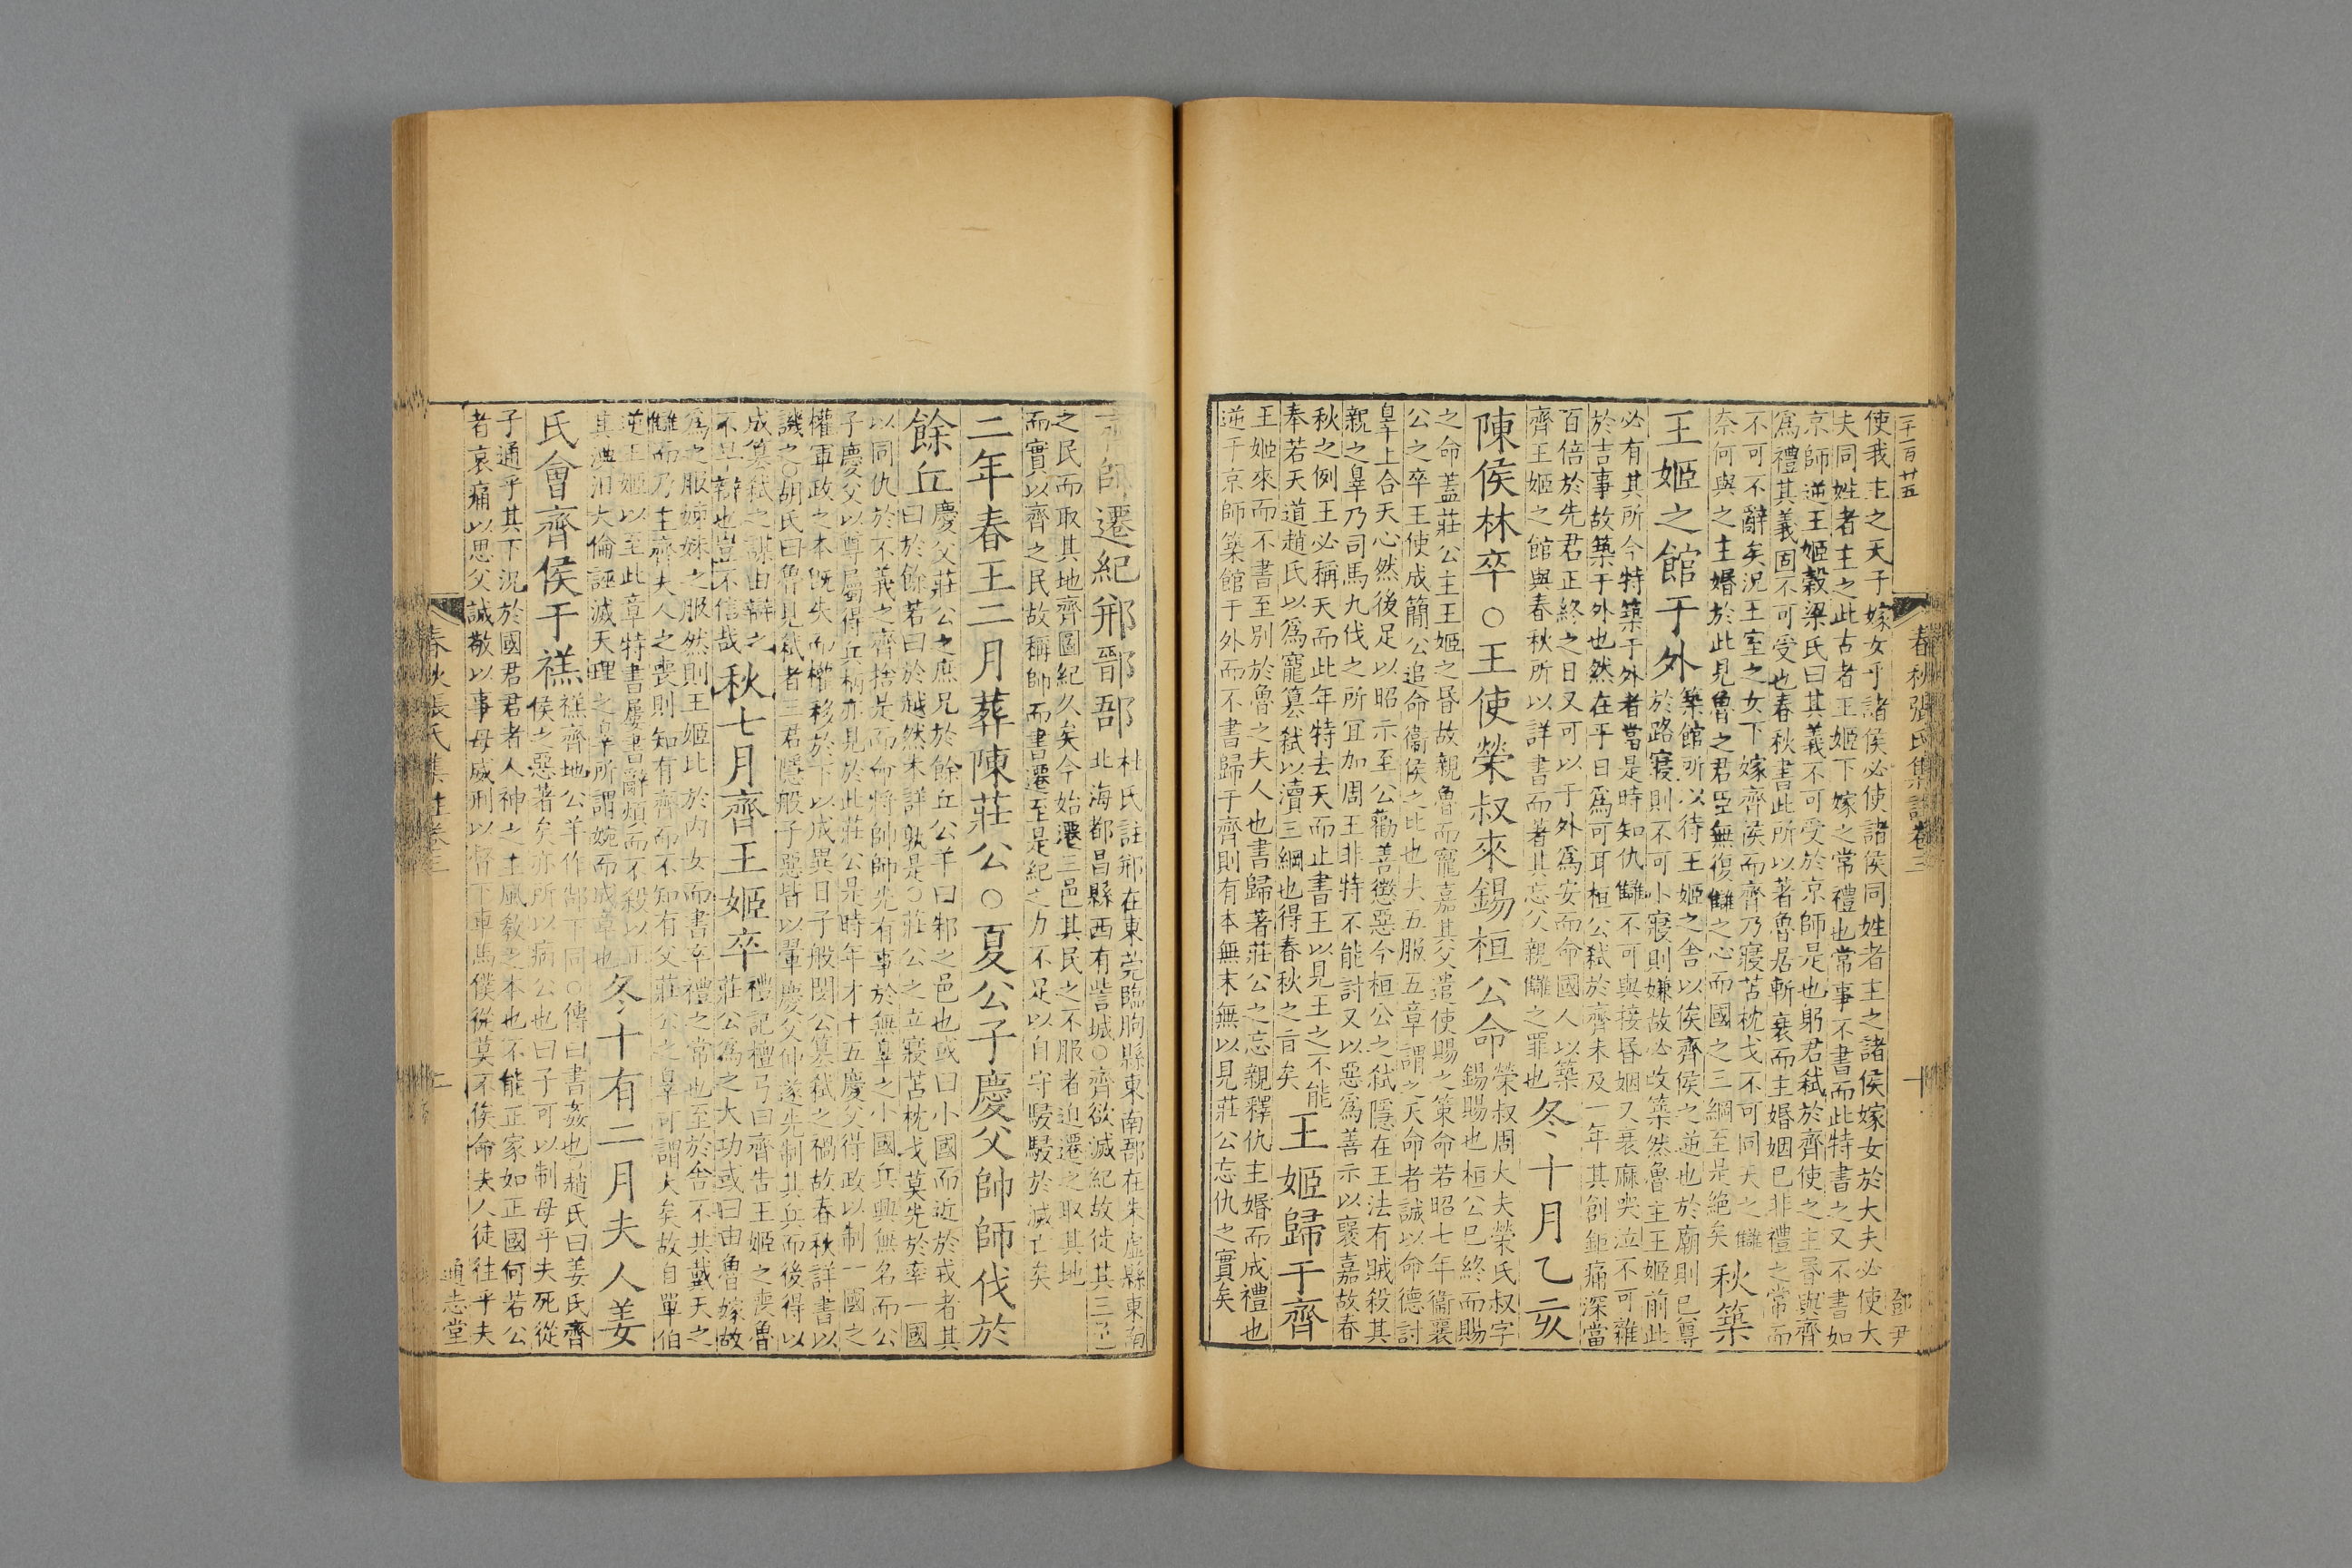 二千一百廿五
春秋張氏集註卷三
鄧尹
使我主之天子嫁女乎諸侯必使諸侯同姓者主之諸侯嫁女於大夫必使大
夫同姓者主之此古者王姬下嫁之常禮也常事不書而此特書之又不書如
京師逆王姬穀梁氏曰其義不可受於京師是也躬君弒於齊使之主昏與齊
爲禮其義固不可受也春秋書此所以著魯居斬衰而主婚姻已非禮之常而
不可不辭矣況王室之女下嫁齊侯而齊乃寢苫枕戈不可同天之讎
奈何與之主婚於此見魯之君臣無復讎之心而國之三綱至是絶矣秋築
王姬之館于外
築館所以待王姬之舍以俟齊侯之逆也於廟則已尊
於路寢則不可小寢則嫌故必改築然魯主王姬前此
必有其所今特築于外者當是時知仇讎不可與接昏姻又衰麻哭泣不可雜
於吉事故築于外也然在平日爲可耳桓公弒於齊未及一年其創鉅痛深當
百倍於先君正終之日又可以于外爲安而命國人以築
齊王姬之館與春秋所以詳書而著其忘父親讎之罪也
冬十月乙亥
陳侯林卒○王使榮叔來錫桓公命
榮叔周大夫榮氏叔字
錫賜也桓公已終而賜
之命蓋莊公主王姬之昏故親魯而寵嘉其父遣使賜之策命若昭七年衞襄
公之卒王使成簡公追命衞侯之比也大五服五章謂之天命者誠以命德討
辠上合天心然後足以昭示至公勸善懲惡今桓公之弒隱在王法有賊殺其
親之辠乃司馬九伐之所宜加周王非特不能討又以惡爲善示以襃嘉故春
秋之例王必稱天而此年特去天而止書王以見王之不能
奉若天道趙氏以爲寵篡弒以瀆三綱也得春秋之旨矣
王姬歸于齊
王姬來而不書至別於魯之夫人也書歸著莊公之忘親釋仇主婚而成禮也
逆于京師築館于外而不書歸于齊則有本無末無以見莊公忘仇之實矣
齊師遷紀郱鄑郚
杜氏註郱在東莞臨朐縣東南郚在朱虛縣東南
北海都昌縣西有訾城○齊欲滅紀故徙其三邑
之民而取其地齊圖紀久矣今始遷三邑其民之不服者迫遷之取其地
而實以齊之民故稱師而書遷至是紀之力不足以自守駸駸於滅亡矣
二年春王二月葬陳莊公○夏公子慶父帥師伐於
餘丘
慶父莊公之庶兄於餘丘公羊曰邾之邑也或曰小國而近於戎者其
曰於餘若曰於越然未詳孰是○莊公之立寢苫枕戈莫先於率一國
以同仇於不義之齊捨是而命將帥師先有事於無辠之小國兵興無名而公
子慶父以尊屬得兵柄亦見於此莊公是時年才十五慶父得政以制一國之
權軍政之本旣失而權移於下以成異日子般閔公篡弒之禍故春秋詳書以
譏之○胡氏曰魯見弒者三君隱般子惡皆以翬慶父仲遂先制其兵而後得以
成篡弒之謀由辯之
不早辯也豈不信哉
秋七月齊王姬卒
禮記檀弓曰齊告王姬之喪魯
莊公爲之大功或曰由魯嫁故
爲之服姊妹之服然則王姬比於內女而書卒禮之常也至於舍不共戴天之
讎而乃主齊夫人之喪則知有齊而不知有父莊公之辠可謂大矣故自單伯
逆王姬以至此章特書屢書辭煩而不殺以正
其瀆汨大倫誣滅天理之辠所謂婉而成章也
冬十有二月夫人姜
氏會齊侯于禚
禚齊地公羊作郜下同○傳曰書姦也趙氏曰姜氏齊
侯之惡著矣亦所以病公也曰子可以制母乎夫死從
子通乎其下況於國君君者人神之主風敎之本也不能正家如正國何若公
者哀痛以思父誠敬以事母威刑以督下車馬僕從莫不俟命夫人徒往乎夫
春秋張氏集註卷三
通志堂